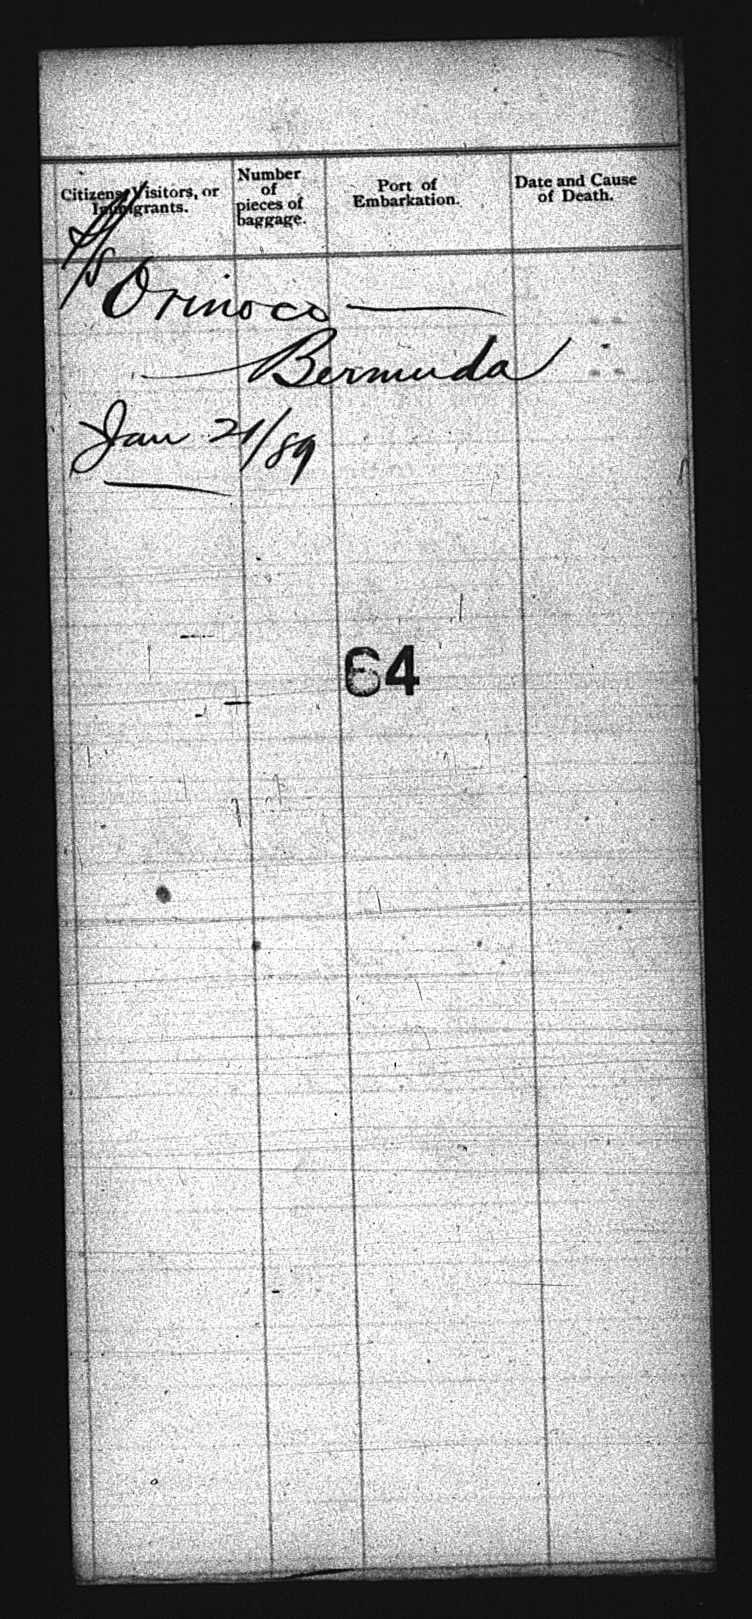 Citizens, Visitors, or Immigrants.
Number of pieces of baggage.
Port of Embarkation.
Date and Cause of Death.
S/S Orinoco
Bermuda
Jan 21/89
64